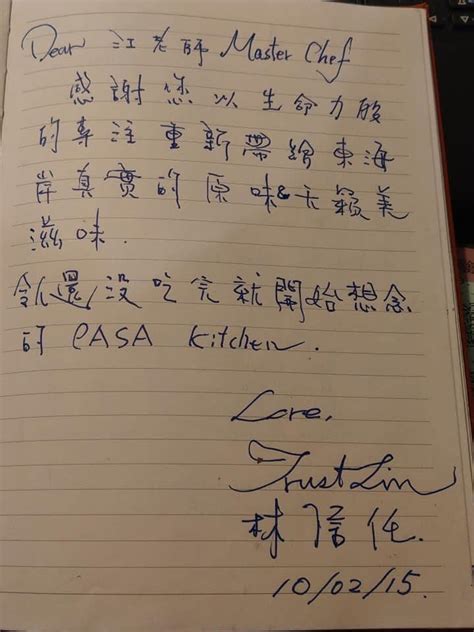 Dear 江老師 Master Chef
感謝您以生命力般
的專注重新帶給東海
岸真實的原味&天籟美
滋味.
令人還沒吃完就開始想念
的 PASA Kitchen.
Love,
Trust Lin
林信任.
10/02/15.